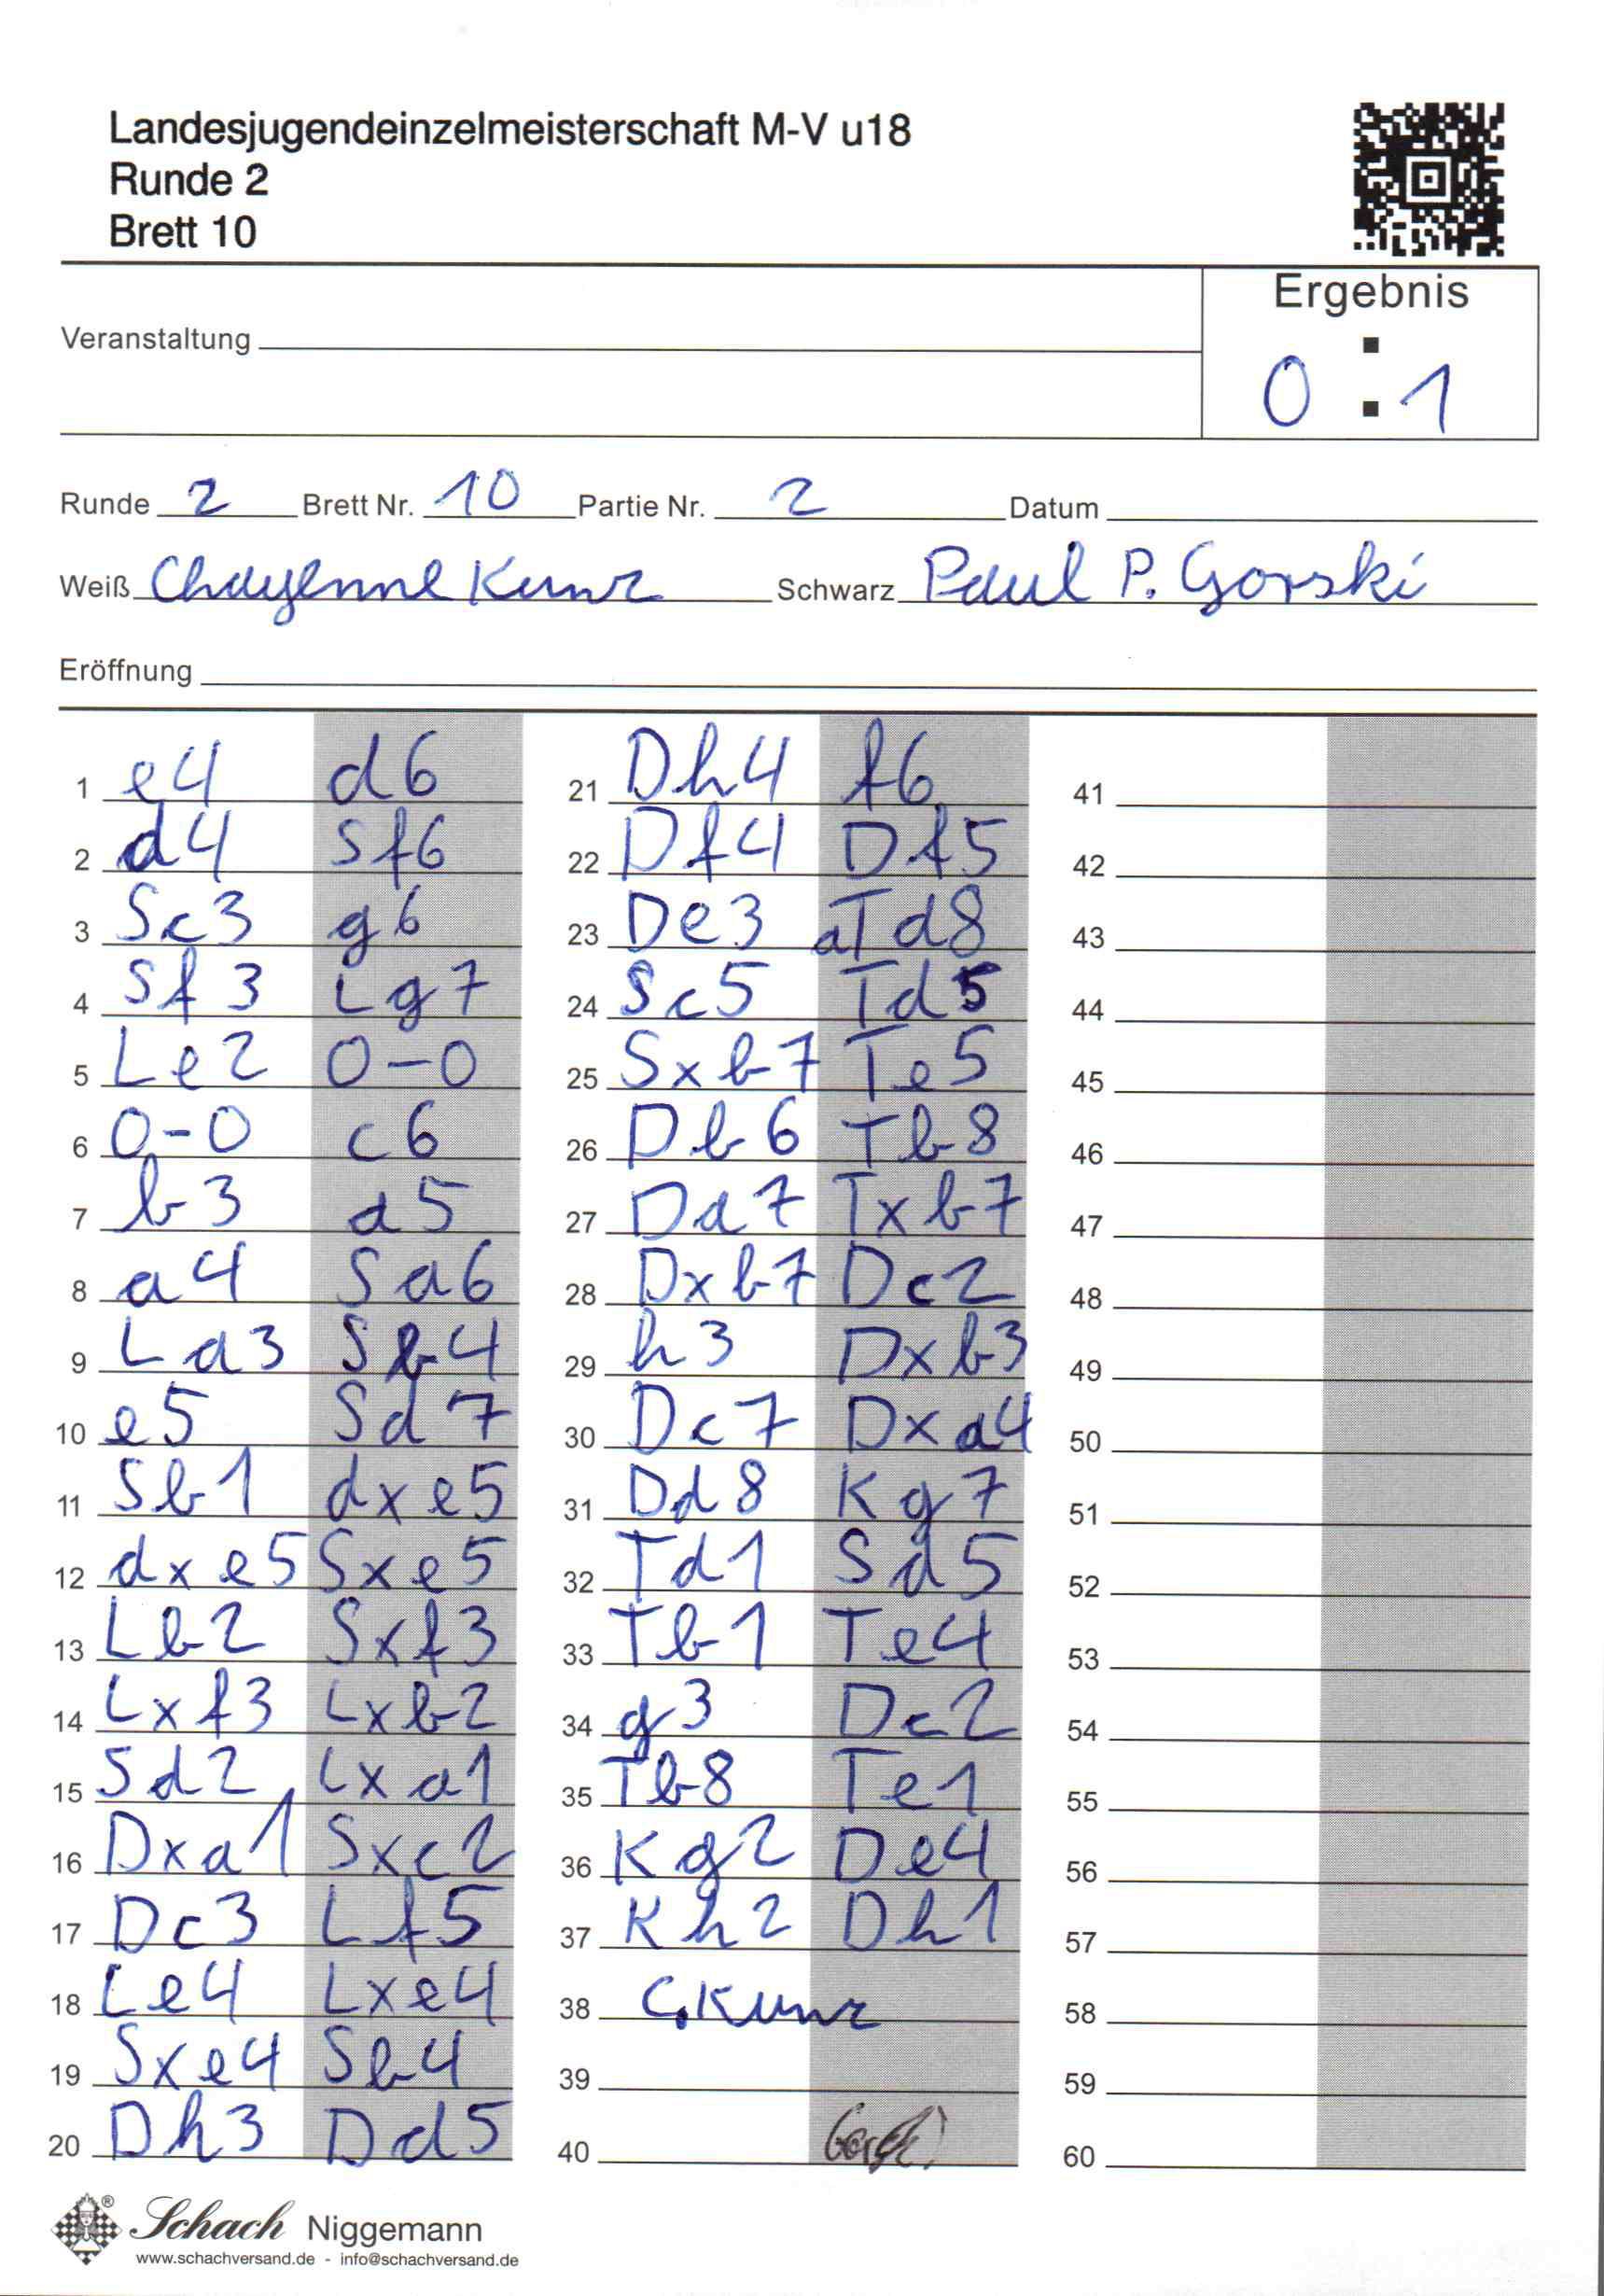 Landesjugendeinzelmeisterschaft M-V u18
Runde 2
Brett 10
Ergebnis
0 : 1
Veranstaltung
Runde 2 Brett Nr. 10 Partie Nr. 2 Datum
Weiß Chayenne Kunz Schwarz Paul P. Gorski
Eröffnung
1 e4 d6
2 d4 Sf6
3 Sc3 g6
4 Sf3 Lg7
5 Le2 0-0
6 0-0 c6
7 b3 a5
8 a4 Sa6
9 La3 Sb4
10 e5 Sd7
11 Sb1 dxe5
12 dxe5 Sxe5
13 Lb2 Sxf3
14 Lxf3 Lxb2
15 Sd2 Lxa1
16 Dxa1 Sxc2
17 Dc3 Lf5
18 Le4 Lxe4
19 Sxe4 Sb4
20 Dh3 Dd5
21 Dh4 f6
22 Df4 Df5
23 De3 aTd8
24 Sc5 Td5
25 Sxb7 Te5
26 Db6 Tb8
27 Da7 Txb7
28 Dxb7 Dc2
29 h3 Dxb3
30 Dc7 Dxa4
31 Dd8 Kg7
32 Td1 Sd5
33 Tb1 Te4
34 g3 Dc2
35 Tb8 Te1
36 Kg2 De4
37 Kh2 Dh1
38 C.Kunz
39
40
41
42
43
44
45
46
47
48
49
50
51
52
53
54
55
56
57
58
59
60
Schach Niggemann
www.schachversand.de - info@schachversand.de